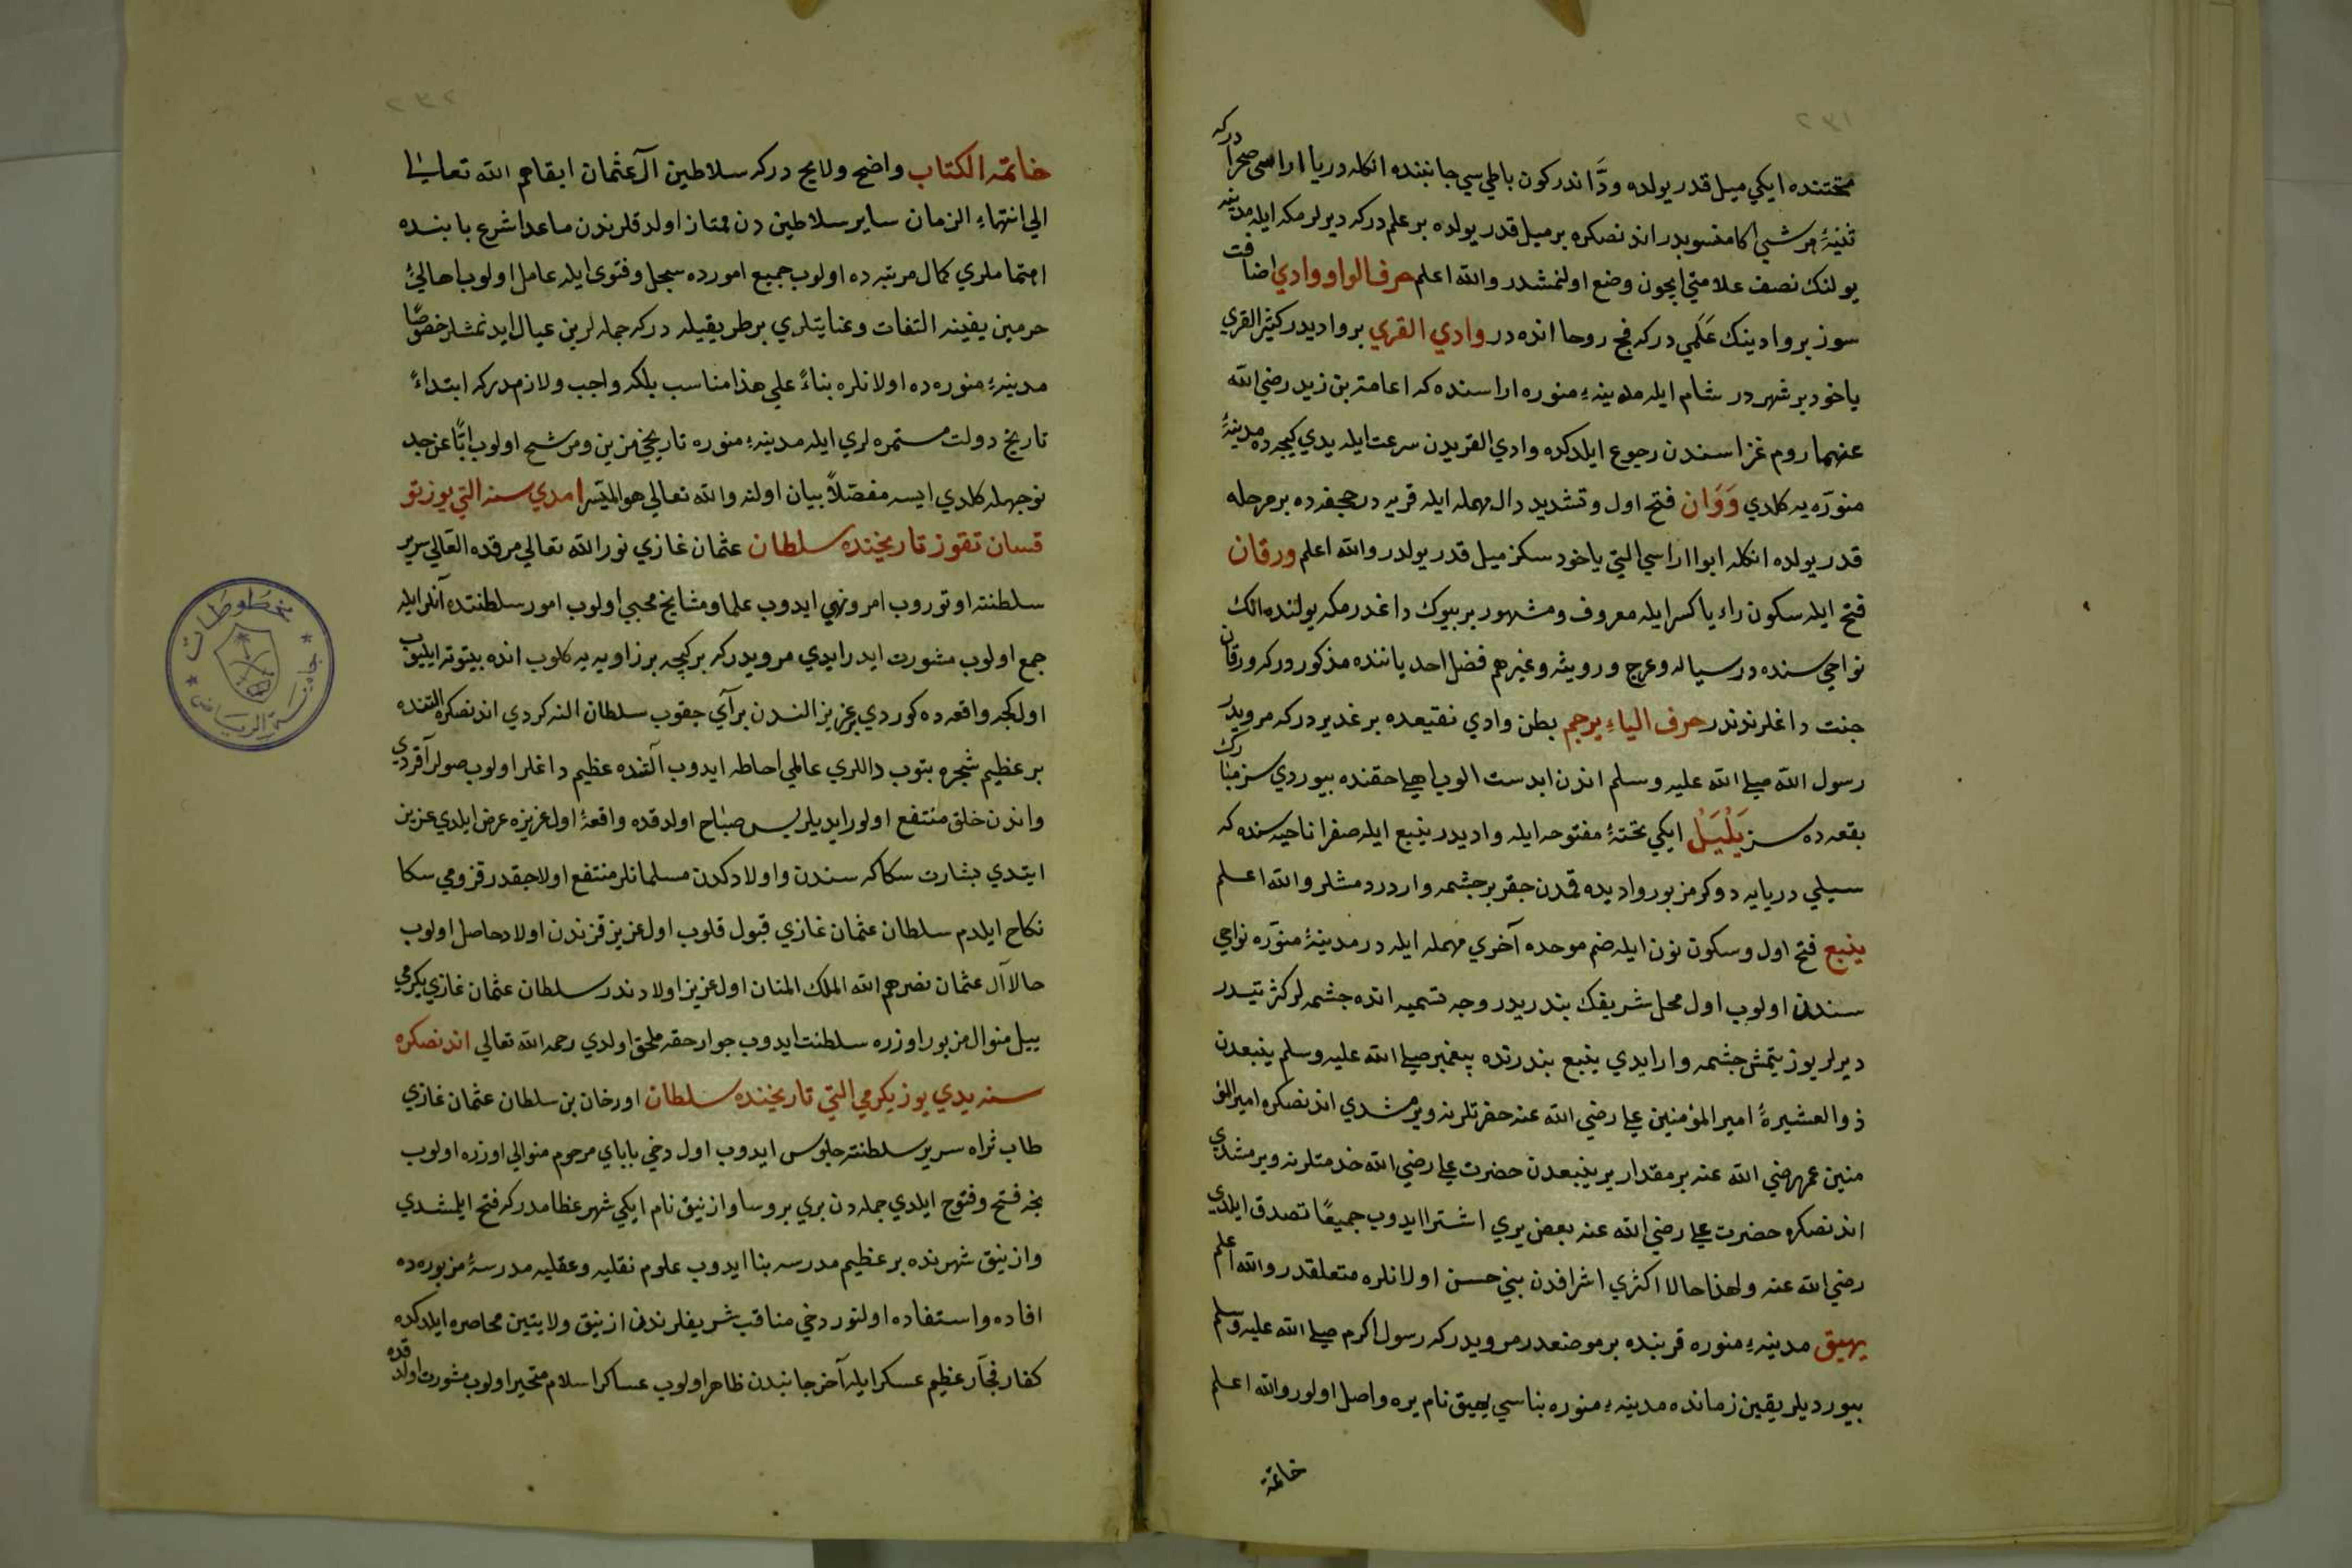 ٢٣١
تختنده ايكي ميل قدر يولده ودّاندر كون باطيسي جانبنده انكله دريا اراسى صحرا دركه
ثنيهٔ هرشى اكا منسوبدر اندنصكره بر ميل قدر يولده بر علم دركه ديرلر مكه ايله مدينه
يولنك نصف علامتي ايچون وضع اولنمشدر والله اعلم حرف الواو وادي اضافت
سوز بر وادينك علمي دركه فج روحا انده در وادي القري بر واديدر كثير القري
ياخود بر شهر در شام ايله مدينهء منوره اراسنده كه اسامة بن زيد رضي الله
عنهما روم غزاسندن رجوع ايلدكده وادي القريدن سرعت ايله يدي كيجه ده مدينهٔ
منوّره يه كلدي ودّان فتح اول وتشديد دال مهمله ايله قريه در جحفه ده بر مرحله
قدر يولده انكله ابوا اراسي التي ياخود سكز ميل قدر يولدر والله اعلم ورقان
فتح ايله سكون راء يا كسر ايله معروف ومشهور بر بيوك داغدر مكه يولنده انك
نواحيسنده در سياله وعرج ورويثه وغيرهم فضل احد ياننده مذكور در كه ورقان
جنت داغلرندندر حرف الياء يرجم بطن وادي نقيعده بر غدير دركه مرويدر
رسول الله صلى الله عليه وسلم اندن ابدست الوب اهلي حقنده بيوردي سز مبارك
بقعه ده سز يَلْيَلْ ايكي تحتهٔ مفتوحه ايله واديدر ينبع ايله صفرا ناحيه سنده كه
سيلي دريايه دوكر مزبور واديده قمدن چقر بر چشمه واردر دمشلر والله اعلم
ينبع فتح اول وسكون نون ايله ضم موحده آخري مهمله ايله در مدينهٔ منوّره نواحي
سندن اولوب اول محل شريفك بندريدر وجه تسميه انده چشمه لر كثرتيدر
ديرلر يوز يتمش چشمه وار ايدي ينبع بندرنده پيغمبر صلى الله عليه وسلم ينبعدن
ذو العشيرهٔ امير المؤمنين علي رضي الله عنه حضرتلرينه ويرمشدي اندنصكره امير المؤ
منين عمر رضي الله عنه بر مقدار ير ينبعدن حضرت علي رضي الله خدمتلرينه ويرمشدي
اندنصكره حضرت علي رضي الله عنه بعض يري اشترا ايدوب جميعًا تصدق ايلدي
رضي الله عنه ولهذا حالا اكثري اشرافدن بني حسن اولانلره متعلقدر والله اعلم
يهيق مدينهء منوره قربنده بر موضعدر مرويدر كه رسول اكرم صلى الله عليه وسلم
بيورديلر يقين زمانده مدينهء منوره بناسي يهيق نام يره واصل اولور والله اعلم
خاتمة
٢٣٢
خاتمة الكتاب واضح ولايح دركه سلاطين آل عثمان ابقاهم الله تعالى
الي انتهاء الزمان ساير سلاطين دن ممتاز اولدقلرندن ماعدا شرع بابنده
اهتماملري كمال مرتبه ده اولوب جميع امورده سجل وفتوى ايله عامل اولوب اهالئ
حرمين يفينه التفات وعنايتلري بر طريقيله دركه جمله لرين عيال ايدنمشلر خصوصًا
مدينهء منوره ده اولانلره بناءً علي هذا مناسب بلكه واجب ولازمدركه ابتداءً
تاريخ دولت مستمره لري ايله مدينهء منوره تاريخي مزين ومرشح اولوب ابًّا عن جد
نوجهله كلدي ايسه مفصّلاً بيان اولنه والله تعالي هو الميسّر امدي سنه التي يوز تو
قسان تقوز تاريخنده سلطان عثمان غازي نور الله تعالي مرقده العالي سرير
سلطنته اوتوروب امر ونهي ايدوب علما ومشايخ محبي اولوب امور سلطنتده آنلر ايله
جمع اولوب مشورت ايدر ايدي مرويدر كه بر كيجه بر زاويه يه كلوب انده بيتوته ايليوب
اول كجه واقعه ده كوردي بر عزيز الندن بر آي چقوب سلطان النه كردي اندنصكره التنده
بر عظيم شجره بتوب داللري عالمي احاطه ايدوب آلتنده عظيم داغلر اولوب صولر آقردي
واندن خلق منتفع اولور ايديلر پس صباح اولدقده واقعهٔ اول عزيزه عرض ايلدي عزيز
ايتدي بشارت سكا كه سندن واولادكدن مسلمانلر منتفع اولاجقدر قزومي سكا
نكاح ايلدم سلطان عثمان غازي قبول قلوب اول عزيز قزندن اولاد حاصل اولوب
حالا آل عثمان نصرهم الله الملك المنان اول عزيز اولادندر سلطان عثمان غازي يكرمي
ييل منوال مزبور اوزره سلطنت ايدوب جوار حقه ملحق اولدي رحمه الله تعالي اندنصكره
سنه يدي يوز يكرمي التي تاريخنده سلطان اورخان بن سلطان عثمان غازي
طاب ثراه سرير سلطنته جلوس ايدوب اول دخي باباي مرحوم منوالي اوزره اولوب
نجه فتح وفتوح ايلدي جمله دن بري بروسا وازنيق نام ايكي شهر عظامدر كه فتح ايلمشدي
وازنيق شهرنده بر عظيم مدرسه بنا ايدوب علوم نقليه وعقليه مدرسهٔ مزبوره ده
افاده واستفاده اولنور دخي مناقب شريفلرندن ازنيق ولايتين محاصره ايلدكده
كفار فجّار عظيم عسكر ايله آخر جانبدن ظاهر اولوب عساكر اسلام متحير اولوب مشورت اولدقده
مخطوطات
جامعة الرياض